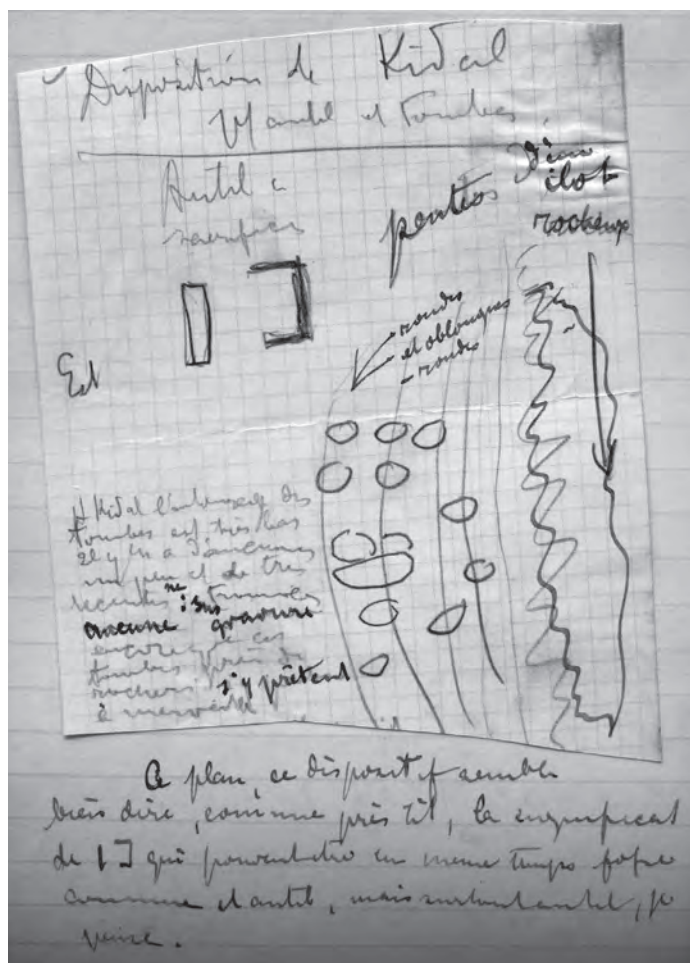 Disposition de Kidal
autel et tombes
Autel à
sacrifices
pentes d'un
ilot
rocheux
Est
- rondes
et oblongues
- rondes
A Kidal l'ensemble des
tombes est très bas
il y en a d'anciennes
un peu et de très
récentes ne trouvées
aucune : sur gravure
encore que ces
tombes près de
rochers s'y prêtent
à merveille
Ce plan, ce dispositif semble
bien dire, comme près Tit, la
de I ⊐ qui en même temps
comme et autel, mais surtout autel, je
pense.